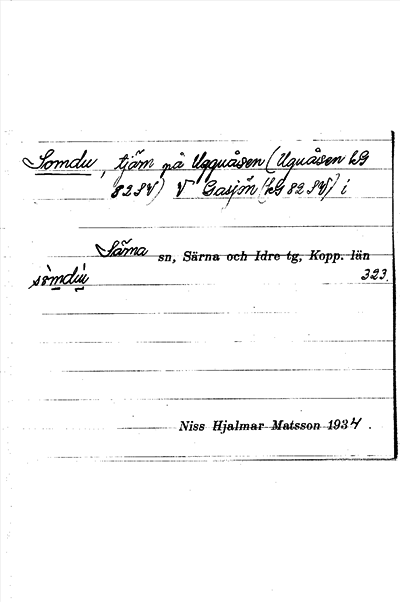 Somdu, tjärn på Ugguåsen (Uguåsen kG
82 SV) V Gasjön (kG 82 SV) i
Särna sn, Särna och Idre tg, Kopp. län
sòmdú 323.
Niss Hjalmar Matsson 1934.